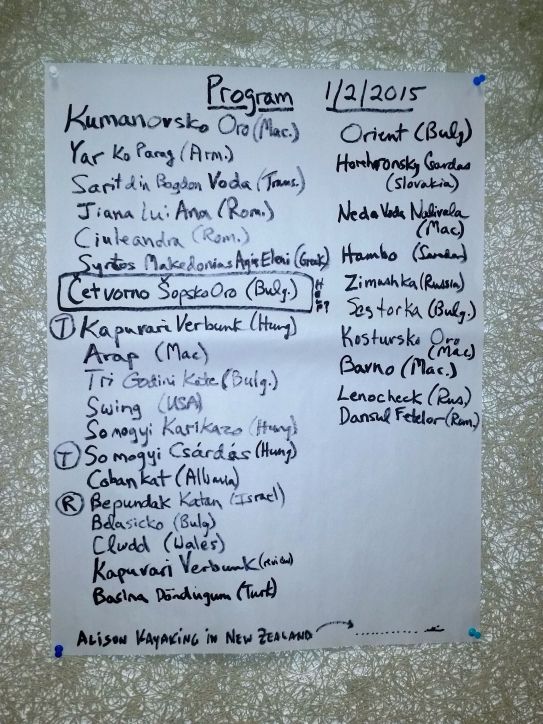 Program 1/2/2015
Kumanovsko Oro (Mac.)
Yar Ko Parag (Arm.)
Sarit din Bogdon Voda (Trans.)
Jiana Lui Ana (Rom.)
Ciuleandra (Rom.)
Syrtos Makedonias Agis Eleni (Greek)
Četvorno Šopsko Oro (Bulg.)
T Kapuvari Verbunk (Hung)
Arap (Mac)
Tri Godini Kate (Bulg.)
Swing (USA)
Somogyi Karikazo (Hung)
T Somogyi Csárdás (Hung)
Cobankat (Albania)
R Bepundak Katan (Israel)
Belasicko (Bulg)
Cludd (Wales)
Kapuvari Verbunk (review)
Basina Döndugum (Turk)
Orient (Bulg)
Horehronsky Csardas
(Slovakia)
Neda Voda Nalivala
(Mac)
Hambo (Sweden)
Zimushka (Russia)
Sestorka (Bulg.)
Kostursko Oro
(Mac)
Bavno (Mac.)
Lenocheck (Rus.)
Dansul Fetelor (Rom.)
Alison Kayaking in New Zealand